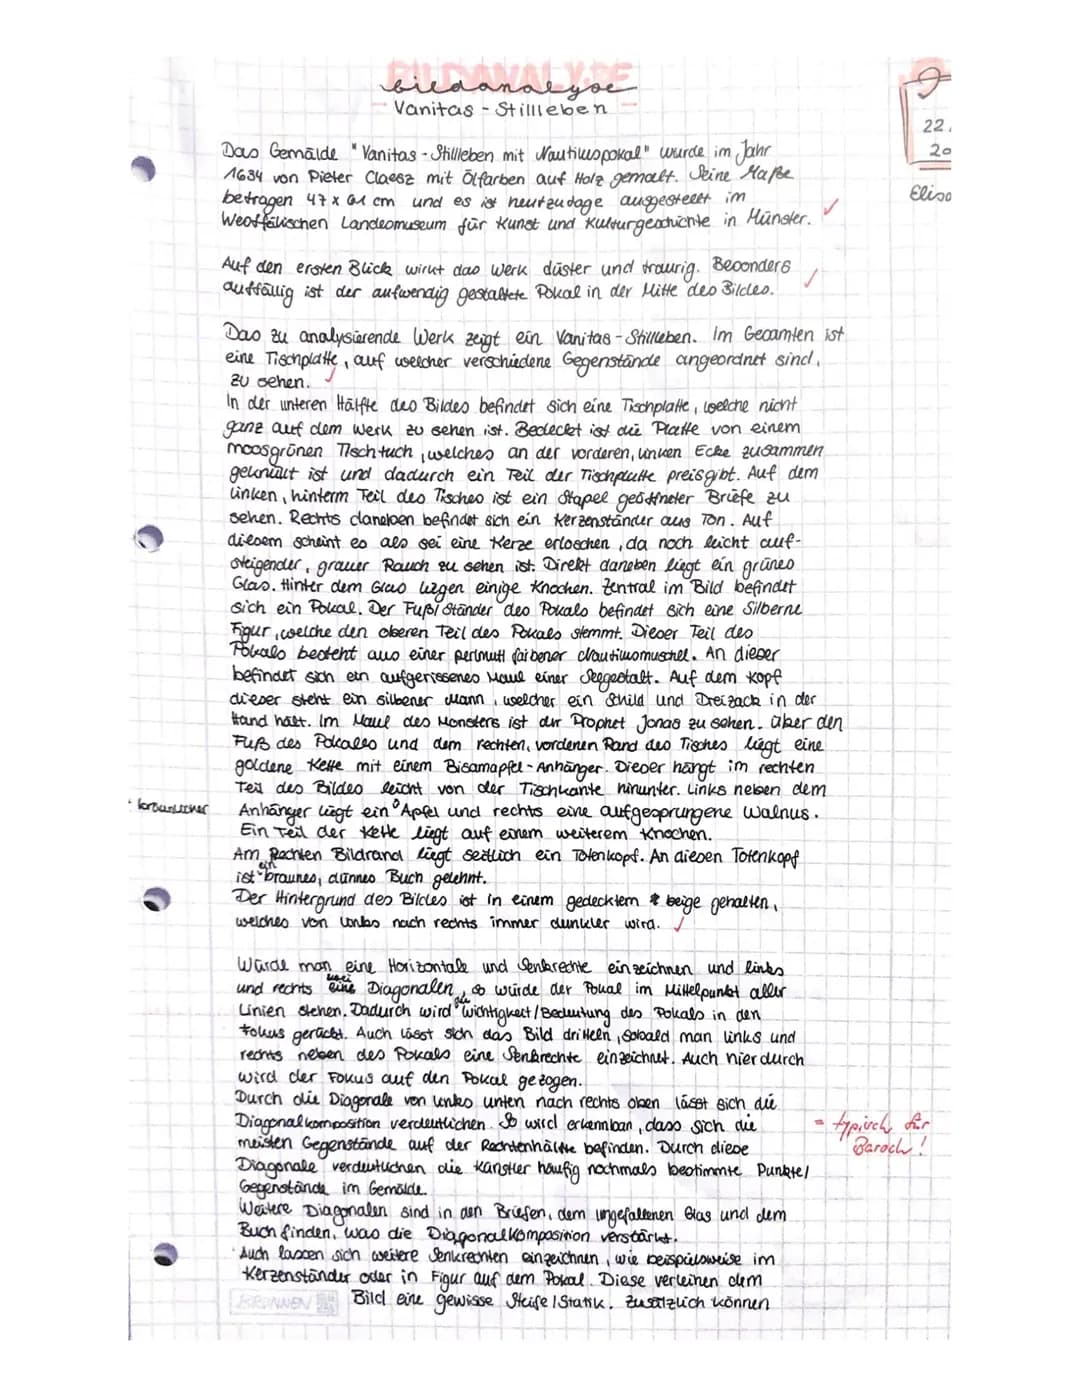 BILDANALYSE
bildanalyse
Vanitas - Stillleben
22.
20
Elisa
Das Gemälde "Vanitas - Stillleben mit Nautiluspokal" wurde im Jahr
1634 von Pieter Claesz mit Ölfarben auf Holz gemalt. Seine Maße
betragen 47 x 61 cm und es ist heutzudage ausgestellt im
Westfälischen Landesmuseum für Kunst und Kulturgeschichte in Münster.
Auf den ersten Blick wirkt das Werk düster und traurig. Besonders
auffällig ist der aufwendig gestaltete Pokal in der Mitte des Bildes.
Das zu analysierende Werk zeigt ein Vanitas - Stillleben. Im Gesamten ist
eine Tischplatte, auf welcher verschiedene Gegenstände angeordnet sind,
zu sehen.
In der unteren Hälfte des Bildes befindet sich eine Tischplatte, welche nicht
ganz auf dem Werk zu sehen ist. Bedeckt ist die Platte von einem
moosgrünen Tischtuch, welches an der vorderen, linken Ecke zusammen
geknüllt ist und dadurch ein Teil der Tischplatte preisgibt. Auf dem
linken, hinterm Teil des Tisches ist ein Stapel geöffneter Briefe zu
sehen. Rechts daneben befindet sich ein Kerzenständer aus Ton. Auf
diesem scheint es als sei eine Kerze erloschen, da noch leicht auf-
steigender, grauer Rauch zu sehen ist. Direkt daneben liegt ein grünes
Glas. Hinter dem Glas liegen einige Knochen. Zentral im Bild befindet
sich ein Pokal. Der Fuß/Ständer des Pokals befindet sich eine Silberne
Figur, welche den oberen Teil des Pokals stemmt. Dieser Teil des
Pokals besteht aus einer perlmutt farbener Nautilusmuschel. An dieser
befindet sich ein aufgerissenes Maul einer Seegestalt. Auf dem Kopf
dieser steht ein silbener Mann, welcher ein Schild und Dreizack in der
Hand hält. Im Maul des Monsters ist der Prophet Jonas zu sehen. Über den
Fuß des Pokales und dem rechten, vordenen Rand des Tisches liegt eine
goldene Kette mit einem Bisamapfel - Anhänger. Dieser hängt im rechten
Teil des Bildes leicht von der Tischkante hinunter. Links neben dem
Anhänger liegt ein ° Apfel und rechts eine aufgesprungene Walnus.
Ein Teil der Kette liegt auf einem weiterem Knochen.
Am Rechten Bildrand liegt seitlich ein Totenkopf. An diesen Totenkopf
ist ein braunes, dünnes Buch gelehnt.
Der Hintergrund des Bildes ist in einem gedecktem beige gehalten,
welches von links nach rechts immer dunkler wird.
Würde man eine Horizontale und Senkrechte einzeichnen und links
und rechts zwei Diagonalen, so würde der Pokal im Mittelpunkt aller
Linien stehen. Dadurch wird die Wichtigkeit/Bedeutung des Pokals in den
Fokus gerückt. Auch lässt sich das Bild dritteln, sobald man links und
rechts neben des Pokals eine Senkrechte einzeichnet. Auch hierdurch
wird der Fokus auf den Pokal gezogen.
Durch die Diagonale von links unten nach rechts oben lässt sich die
Diagonalkomposition verdeutlichen. So wird erkennbar, dass sich die
meisten Gegenstände auf der Rechtenhälfte befinden. Durch diese
Diagonale verdeutlichen die Künstler häufig nochmals bestimmte Punkte/
Gegenstände im Gemälde.
= typisch für
Barock!
Weitere Diagonalen sind in den Briefen, dem umgefallenen Glas und dem
Buch finden, was die Diagonalkomposition verstärkt.
Auch lassen sich weitere Senkrechten einzeichnen, wie beispielsweise im
Kerzenständer oder in Figur auf dem Pokal. Diese verleihen dem
Bild eine gewisse Steife/Statik. Zusätzlich können
BRUNNEN